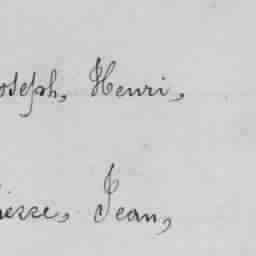 oseph, Henri,
ierre, Jean,